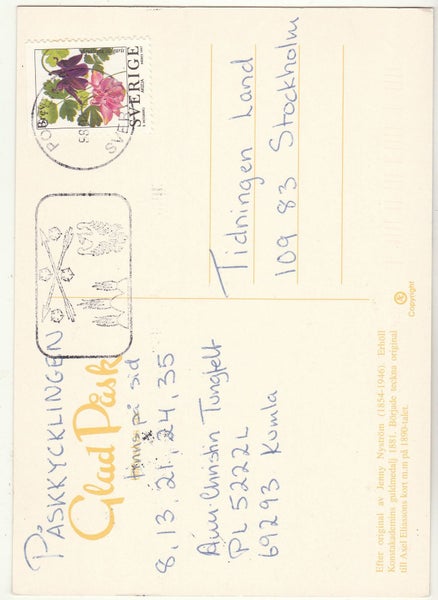 PÅSKKYCKLINGEN
Glad Påsk
finns på sid
8, 13, 21, 24, 35
PL 5222L
69293 Kumla
SVERIGE
Tidningen Land
109 83 Stockholm
Copyright
Efter original av Jenny Nyström (1854-1946). Erhöll
Konstakademins guldmedalj 1881. Började teckna original
till Axel Eliassons kort m.m på 1890-talet.